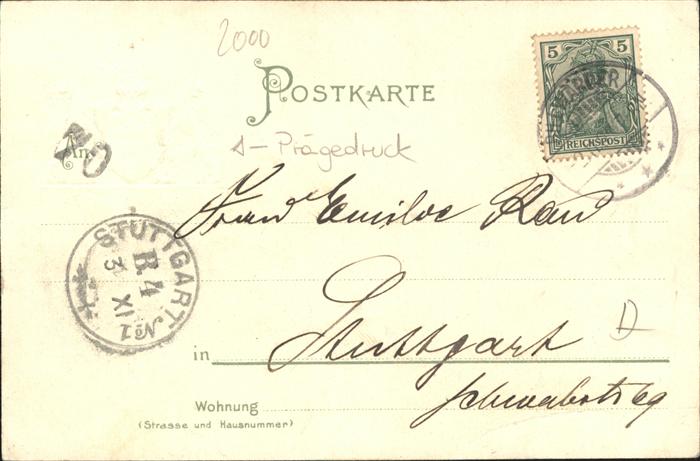 2000
5 5
REICHSPOST
POSTKARTE
An
20
1-Prägedruck
Frau Emilie Rau
STUTTGART No 1
B.4
3 XI
in Stuttgart
D
Wohnung
(Strasse und Hausnummer)